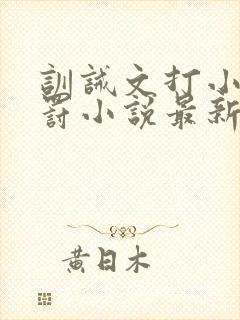 訓誡文打小
罰小說最新
黄日木